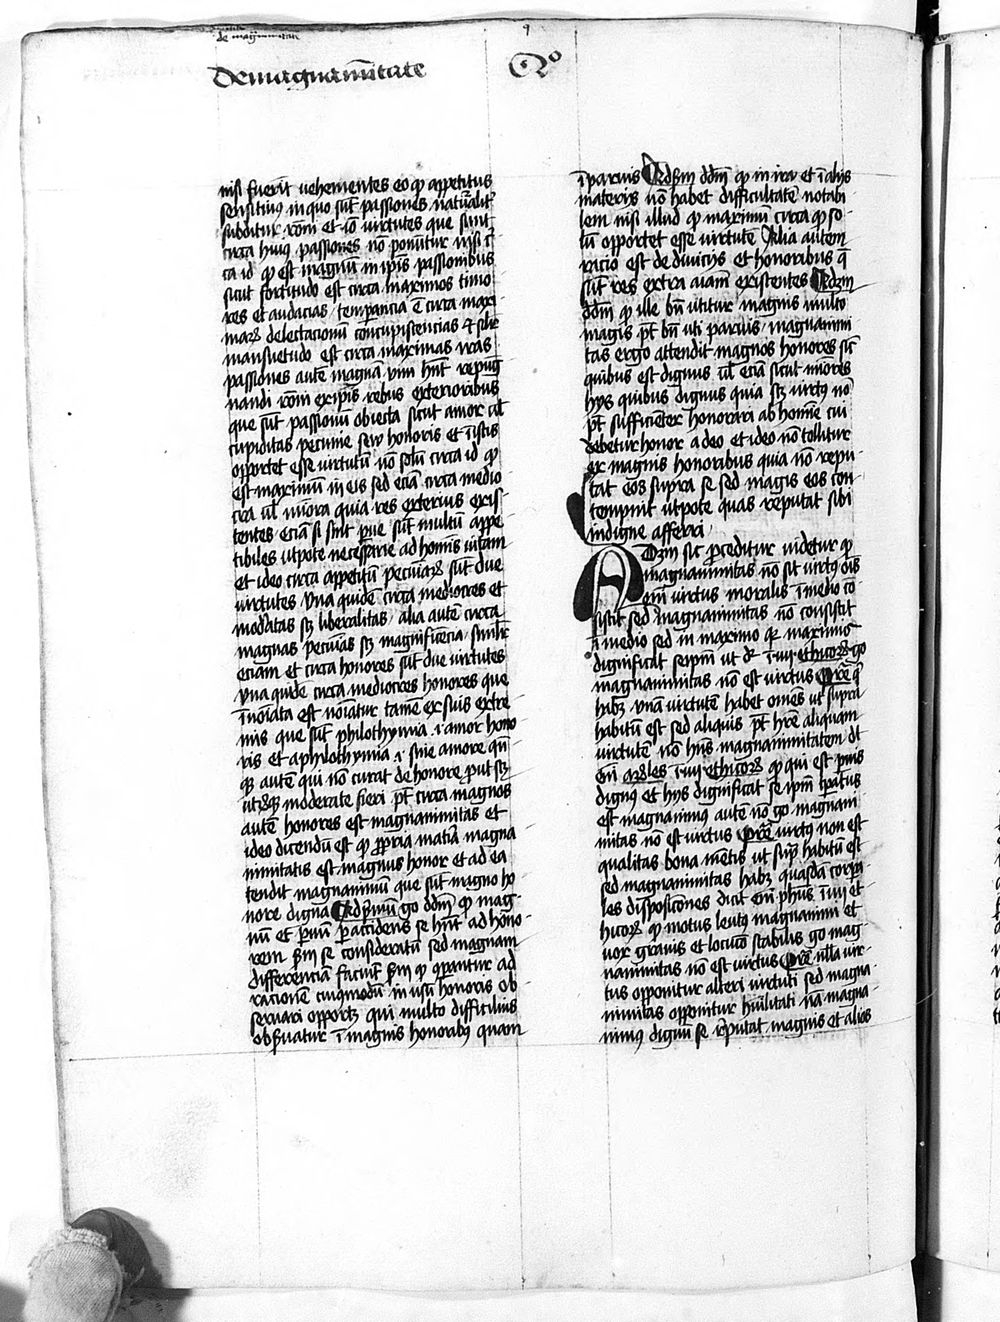 de magnanimitate
De magnanimitate Qo
nisi fuerit vehementes eo qp appetitus
sensitivus in quo sūt passiones nat'alit'
subditur rōni et iō virtutes que sunt
circa huius passiones nō ponūtur nisi cͥ
ca id qp est magnū in ipīs passionibus
sicut fortitudo est circa maximos timo
res et audacias, temperancia ē circa maxi
maꝝ delectacionū concupiscencias ⁊ silr
mansuetudo est circa maximas iras
passiones autē magnā vim hn̄t repug
nandi rōni ex ipīs rebus exterioribus
que sūt passionū obiecta sicut amor ul
cupiditas pecunie seu honoris et ī istis
opportet esse virtutū nō solū circa id qp
est maximū in eis sed eciā circa medio
cria ul minora quia res exterius exis
tentes eciā si sint parve sūt multū appe
tibiles utpote necessarie ad hominis vitam
et ideo circa appetitū pecuniaꝝ sūt due
virtutes vna quidē circa mediocres et
moderatas sꝫ liberalitas, alia autē circa
magnas pecunias sꝫ magnificencia, similit'
eciam et circa honores sūt due virtutes
vna quidē circa mediocres honores que
īnoīata est noīatur tamē ex suis extre
mis que sūt philothymia .i. amor hono
ris et aphilothymia .i. sine amore qn̄
qꝫ autē qui nō curat de honore prout sꝫ
utrūqꝫ moderate fieri pt̄ circa magnos
autē honores est magnanimitas et
ideo dicendū est qp propria matīa magna
nimitatis est magnus honor et ad ea
tendit magnanimus que sūt magno ho
nore digna Ad primū go dd̄m qp mag
nū et parvū per accidens se hn̄t ad hono
rem scdm se consideratū sed magnam
differenciā faciūt scdm qp coparantur ad
racionē cuius modū in usu honoris ob
servari opportꝫ qui multo difficilius
observatur ī magnis honoribꝫ quam
ī parvis Ad scdm dd̄m qp in ira et ī aliis
materiis nō habet difficultatē notabi
lem nisi illud qp maximū circa qp so
lū opportet esse virtutē Alia autem
racio est de divicijs et honoribus q̄
sūt res extra aīam existentes Ad ꝫm
dd̄m qp ille bn̄ utitur magnis multo
magis pt̄ bn̄ uti parvis, magnanimi
tas ergo attendit magnos honores sicut
quibus est dignus ul eciā sicut mīores
hys quibus dignus quia sꝫ virtꝰ nō
pt̄ sufficienter honorari ab homine cui
debetur honor a deo et ideo nō tollitur
ex magnis honoribus quia nō repu
tat eos supra se sed magis eos con
tempnit utpote quas reputat sibi
indigne afferri,
Ad ꝫm sic proceditur videtur qp
magnanimitas nō sit virtꝰ ois
enī virtus moralis ī medio cō
sistit sed magnanimitas nō consistit
ī medio sed in maximo qꝫ maximis
dignificat seipm̄ ut dr̄ ī iiii ethicoꝝ go
magnanimitas nō est virtus Pret̄ q̄
habꝫ vnā virtutē habet omēs ut supra
habitū est sed aliquis pt̄ hr̄e aliquam
virtutē nō hn̄s magnanimitatem dt
en̄ arꝫles ī iiii ethicoꝝ qp qui est parvis
dignꝰ et hys dignificat se ipm̄ tēperatus
est magnanimus autē nō go magnani
mitas nō est virtus Pret̄ virtꝰ non est
qualitas bona mentis ut supra habitū est
sed magnanimitas habꝫ quasdā corpora
les disposiciones dicit enī phūs ī iiii et
hicoꝝ qp motus lentꝰ magnanimi et
vox gravis et locucio stabilis go mag
nanimitas nō est virtus Pret̄ nulla vir
tus opponitur alteri virtuti sed magna
nimitas opponitur hūilitati nā magna
nimus dignū se reputat magnis et alios